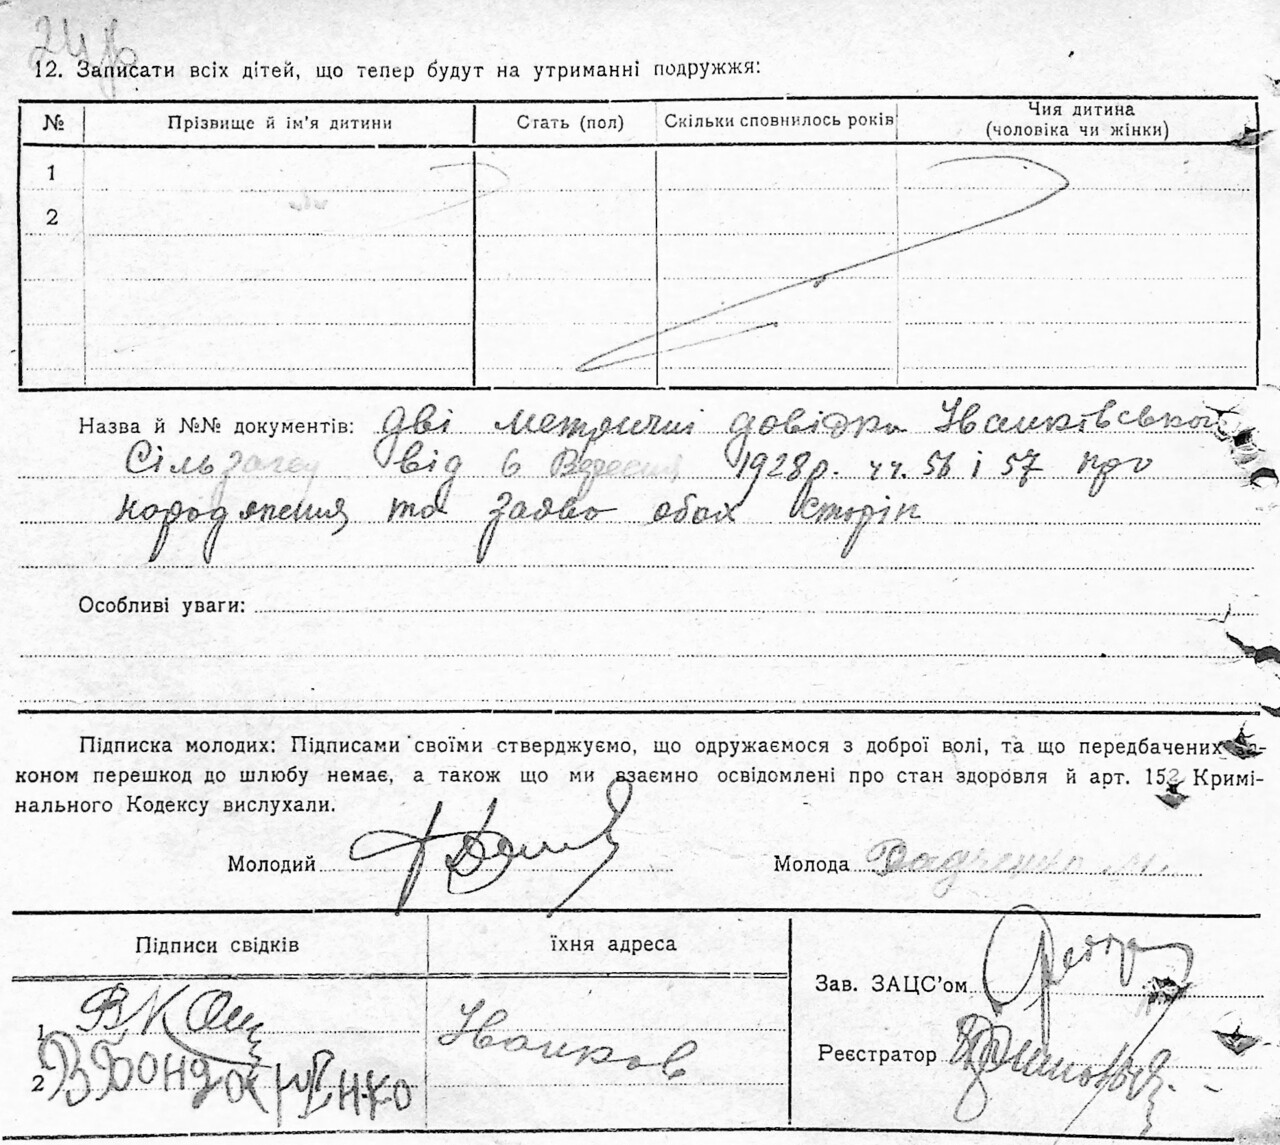 12. Записати всіх дітей, що тепер будут на утриманні подружжя:
№ Прізвище й ім'я дитини Стать (пол) Скільки сповнилось років Чия дитина
(чоловіка чи жінки)
1
2
Назва й №№ документів: дві метричні довідки Іванківського
від 6 Вересня 1928р. чч. 56 і 57 про
народження та заяво обох сторін
Особливі уваги:
Підписка молодих: Підписами своїми стверджуємо, що одружаємося з доброї волі, та що передбачених за-
коном перешкод до шлюбу немає, а також що ми взаємно освідомлені про стан здоровля й арт. 152 Кримі-
нального Кодексу вислухали.
Молодий Молода
Підписи свідків їхня адреса
Зав. ЗАЦС'ом
1 Іванков
Реєстратор
2 В Бондаренко